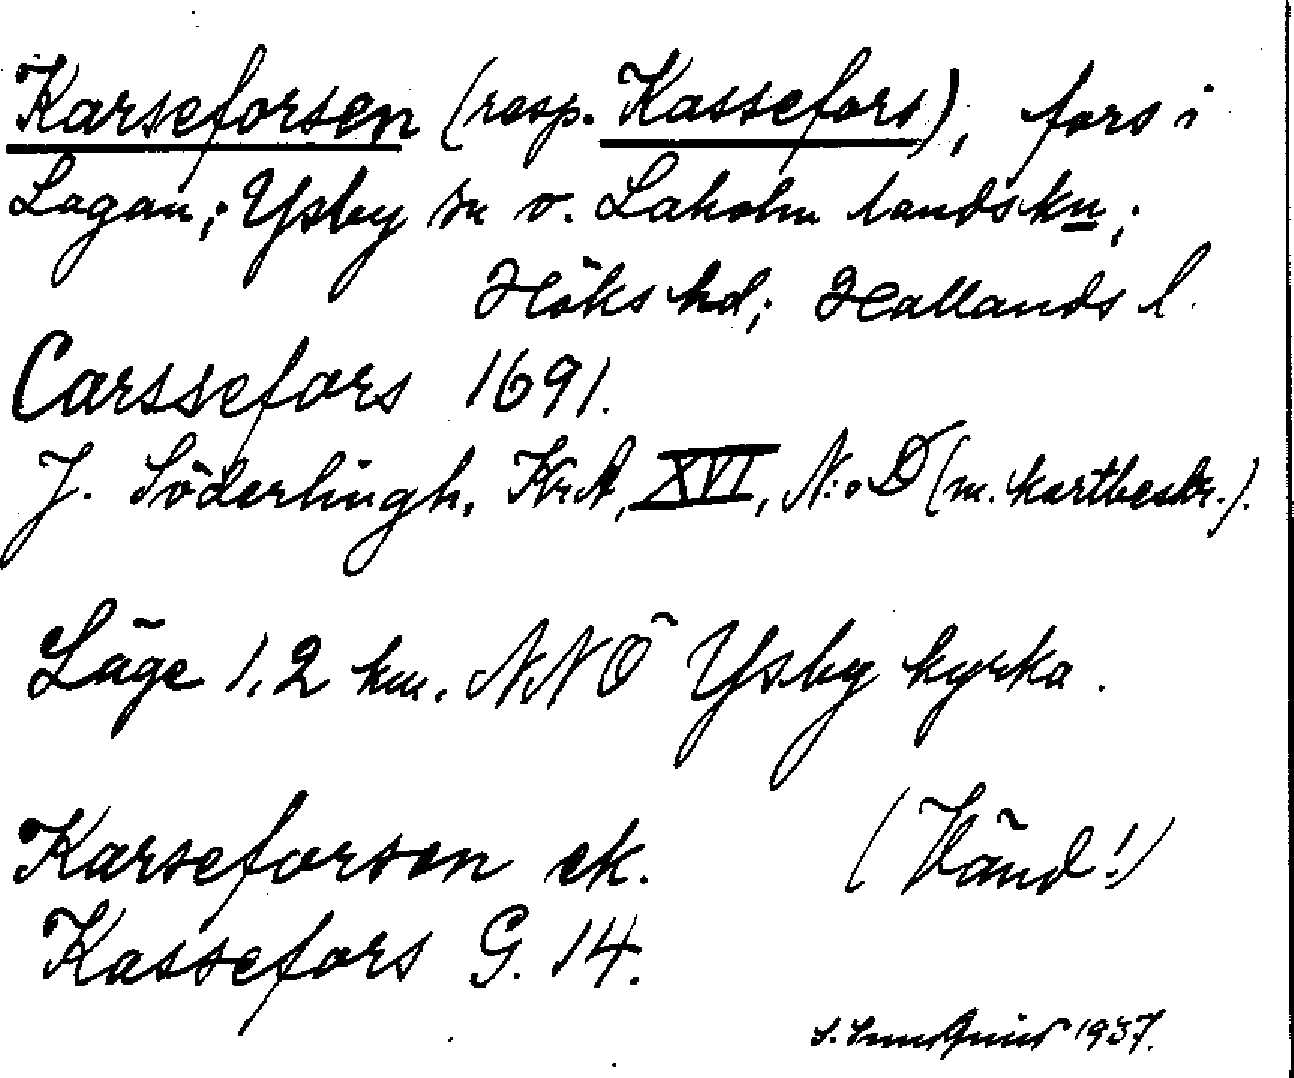 Karseforsen (resp. Kassefors), fors i
Lagan; Ysby sn o. Laholm landskn;
Höks hd; Hallands l.
Carssefors 1691.
J. Söderlingh, KrA, XVI, N:o D (m. kartbeskr.).
Läge 1,2 km. NNÖ Ysby kyrka.
Karseforsen ek. (Vänd!)
Kassefors G. 14.
1937.